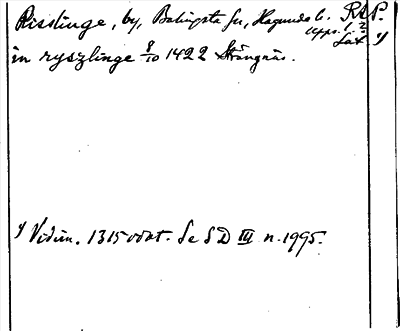 Risslinge, by, Balingsta sn, Hagunda h. RAP.
Upps. l. 2
Lat. 1)
in ryszlinge 8/10 1422 Strängnäs.
1) Vidim. 1315 odat. Se SD III n. 1995.